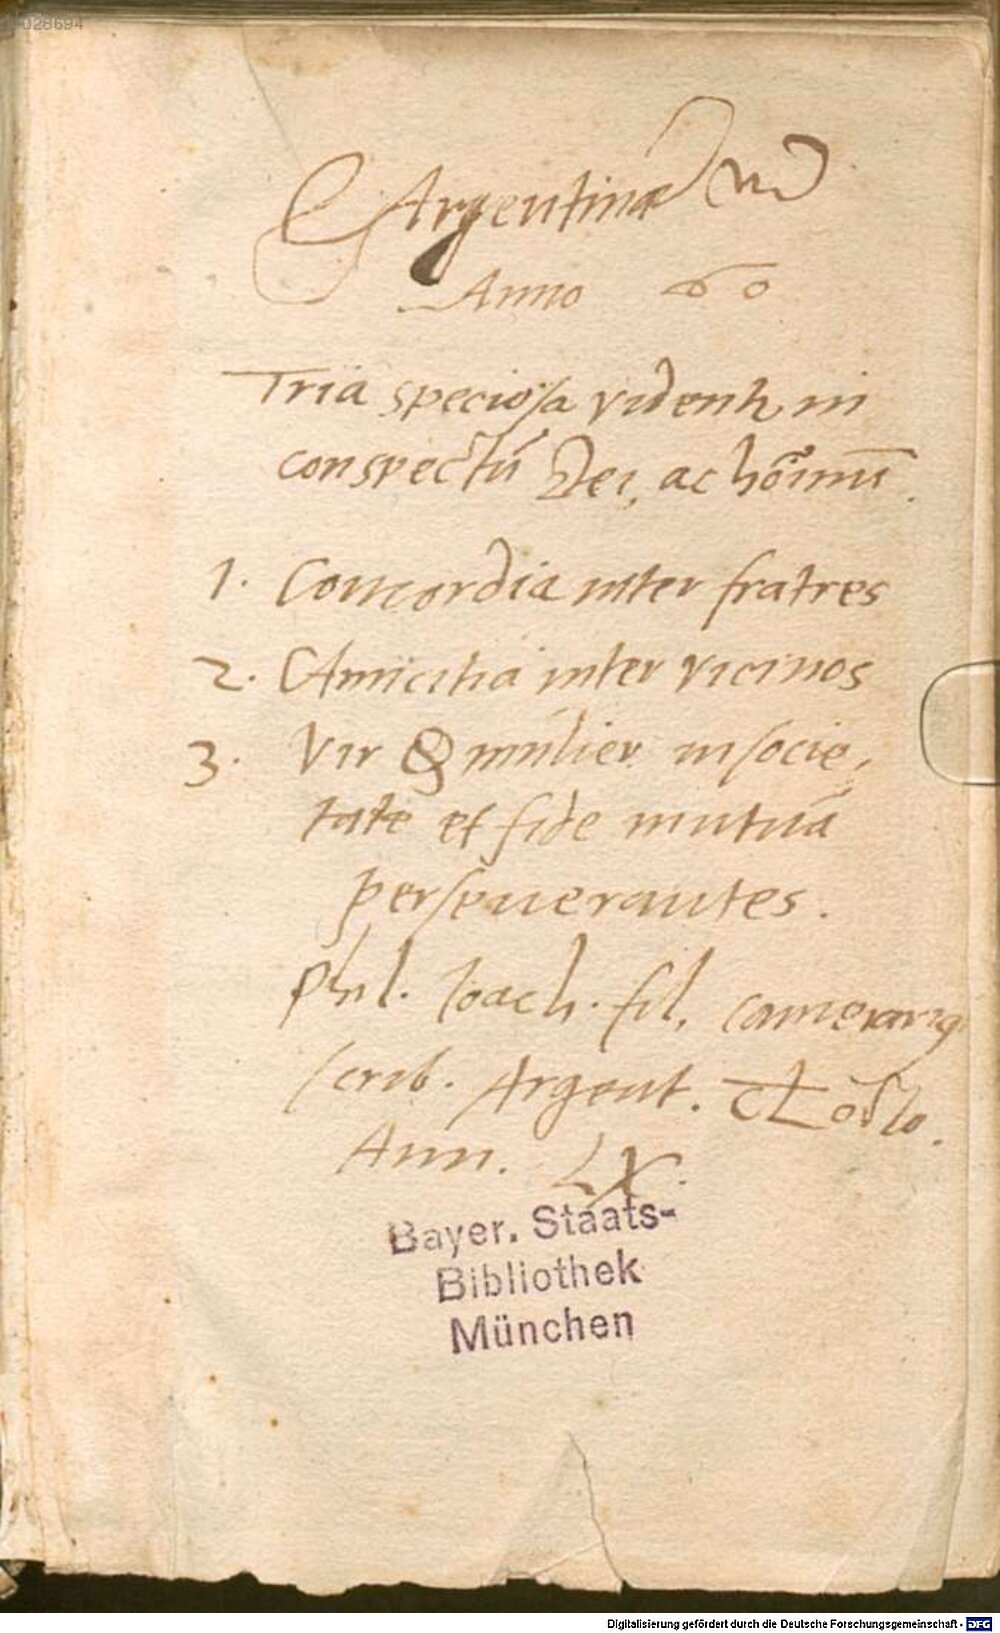 028694
Argentinæ
Anno 60
Tria speciosa vident᷑ in
conspectú Dei, ac hōīmū.
1. Concordia inter fratres
2. Amicitia inter vicinos
3. Vir & múlier in socie,
tate et fide mutuá
perseuerantes.
Phil. Ioach. fil. Camerariꝰ
scrib. Argent.
Ann. LX.
Bayer. Staats-
Bibliothek
München
Digitalisierung gefördert durch die Deutsche Forschungsgemeinschaft - DFG